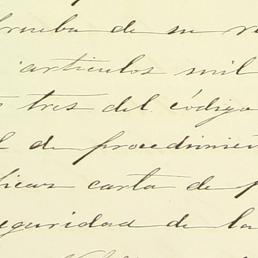 prueba de su
articulos mil
tres del código
de procedimie
carta de
eguridad de la